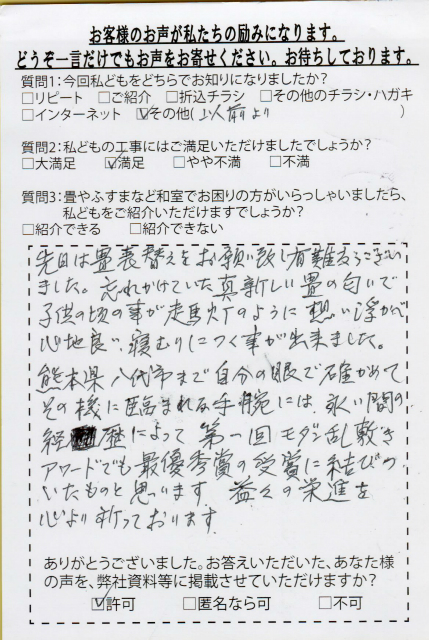 お客様のお声が私たちの励みになります。
どうぞ一言だけでもお声をお寄せください。お待ちしております。
質問1：今回私どもをどちらでお知りになりましたか？
□リピート □ご紹介 □折込チラシ □その他のチラシ・ハガキ
□インターネット ☑その他(以前より )
質問2：私どもの工事にはご満足いただけましたでしょうか？
□大満足 ☑満足 □やや不満 □不満
質問3：畳やふすまなど和室でお困りの方がいらっしゃいましたら、
私どもをご紹介いただけますでしょうか？
□紹介できる □紹介できない
先日は畳表替えをお願い致し有難うございい
ました。忘れかけていた真新しい畳の匂いで
子供の頃の事が走馬灯のように想い浮かべ
心地良い寝むりにつく事が出来ました。
熊本県八代市まで自分の眼で確かめて
その機に臨まれる手腕には、永い間の
経歴によって第一回モダン乱敷き
アワードでも最優秀賞の受賞に結びつ
いたものと思います 益々の栄進を
心より祈っております
ありがとうございました。お答えいただいた、あなた様
の声を、弊社資料等に掲載させていただけますか？
☑許可 □匿名なら可 □不可